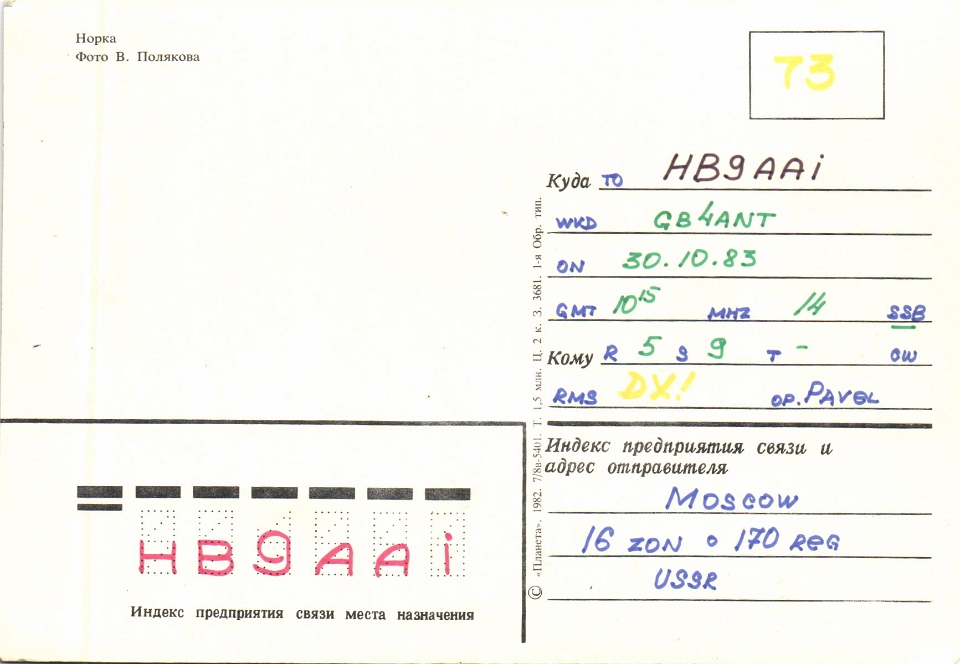 Норка
Фото В. Полякова
73
Куда TO HB9AAi
WKD GB4ANT
ON 30.10.83
GMT 10 15 MHZ 14 SSB
Кому R 5 S 9 T - CW
RMS DX! OP. PAVEL
Индекс предприятия связи и
адрес отправителя
MOSCOW
16 ZON ∘ 170 REG
USSR
HB9AAi
Индекс предприятия связи места назначения
© «Планета». 1982. 7/8в-5401. Т. 1,5 млн. Ц. 2 к. З. 3681. 1-я Обр. тип.